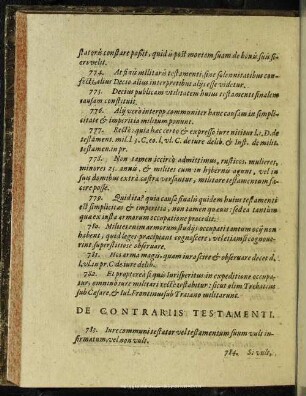 statorū constare possit, quid is post mortem suam de bonis suis fieri
velit.
774. At finis militaris testamenti, sine solennitatibus confecti,
alius Decio, alius interpretibus alijs esse videtur.
775. Decius publicam utilitatem huius testamenti finalem
causam constituit.
776. Alij verò interpp. communiter hanc causam in simplicitate
& imperitia militum ponunt.
777. Rectè: quia hoc certo & expresso iure nititur l. 1. D. de
testament. mil. l. C. eo. l. vl. C. de iure delib. & Inst. de milit.
testam. in pr.
778. Non tamen idcircò admittimus, rusticos, mulieres,
minores 25. annis, & milites cum in hybernis agunt, vel in
suis domibus extra castra versantur, militare testamentum facere
posse.
779. Quid ita? quia causa finalis quidem huius testamenti
est simplicitas & imperitia, non tamen quævis sed ea tantùm
quæ ex ista armorum occupatione procedit.
780. Milites enim armorum studijs occupati tantum ocij non
habent, quod leges præcipiant cognoscere: vel etiamsi cognoverint,
superstitiosè observare.
781. Hi & arma magis, quàm iura scire & observare decet d.
l. vl. in pr. C. de iure delib.
782. Et propterea si quis Iurisperitus in expeditione occupatur,
omninò iure militari rectè testabitur: sicut olim Trebatius
sub Cæsare, & Iul. Frontinus sub Traiano militarunt.
DE CONTRARIIS TESTAMENTI.
783. Iure communi testator vel testamentum suum vult infirmatum,
vel non vult.
784. Si vult,